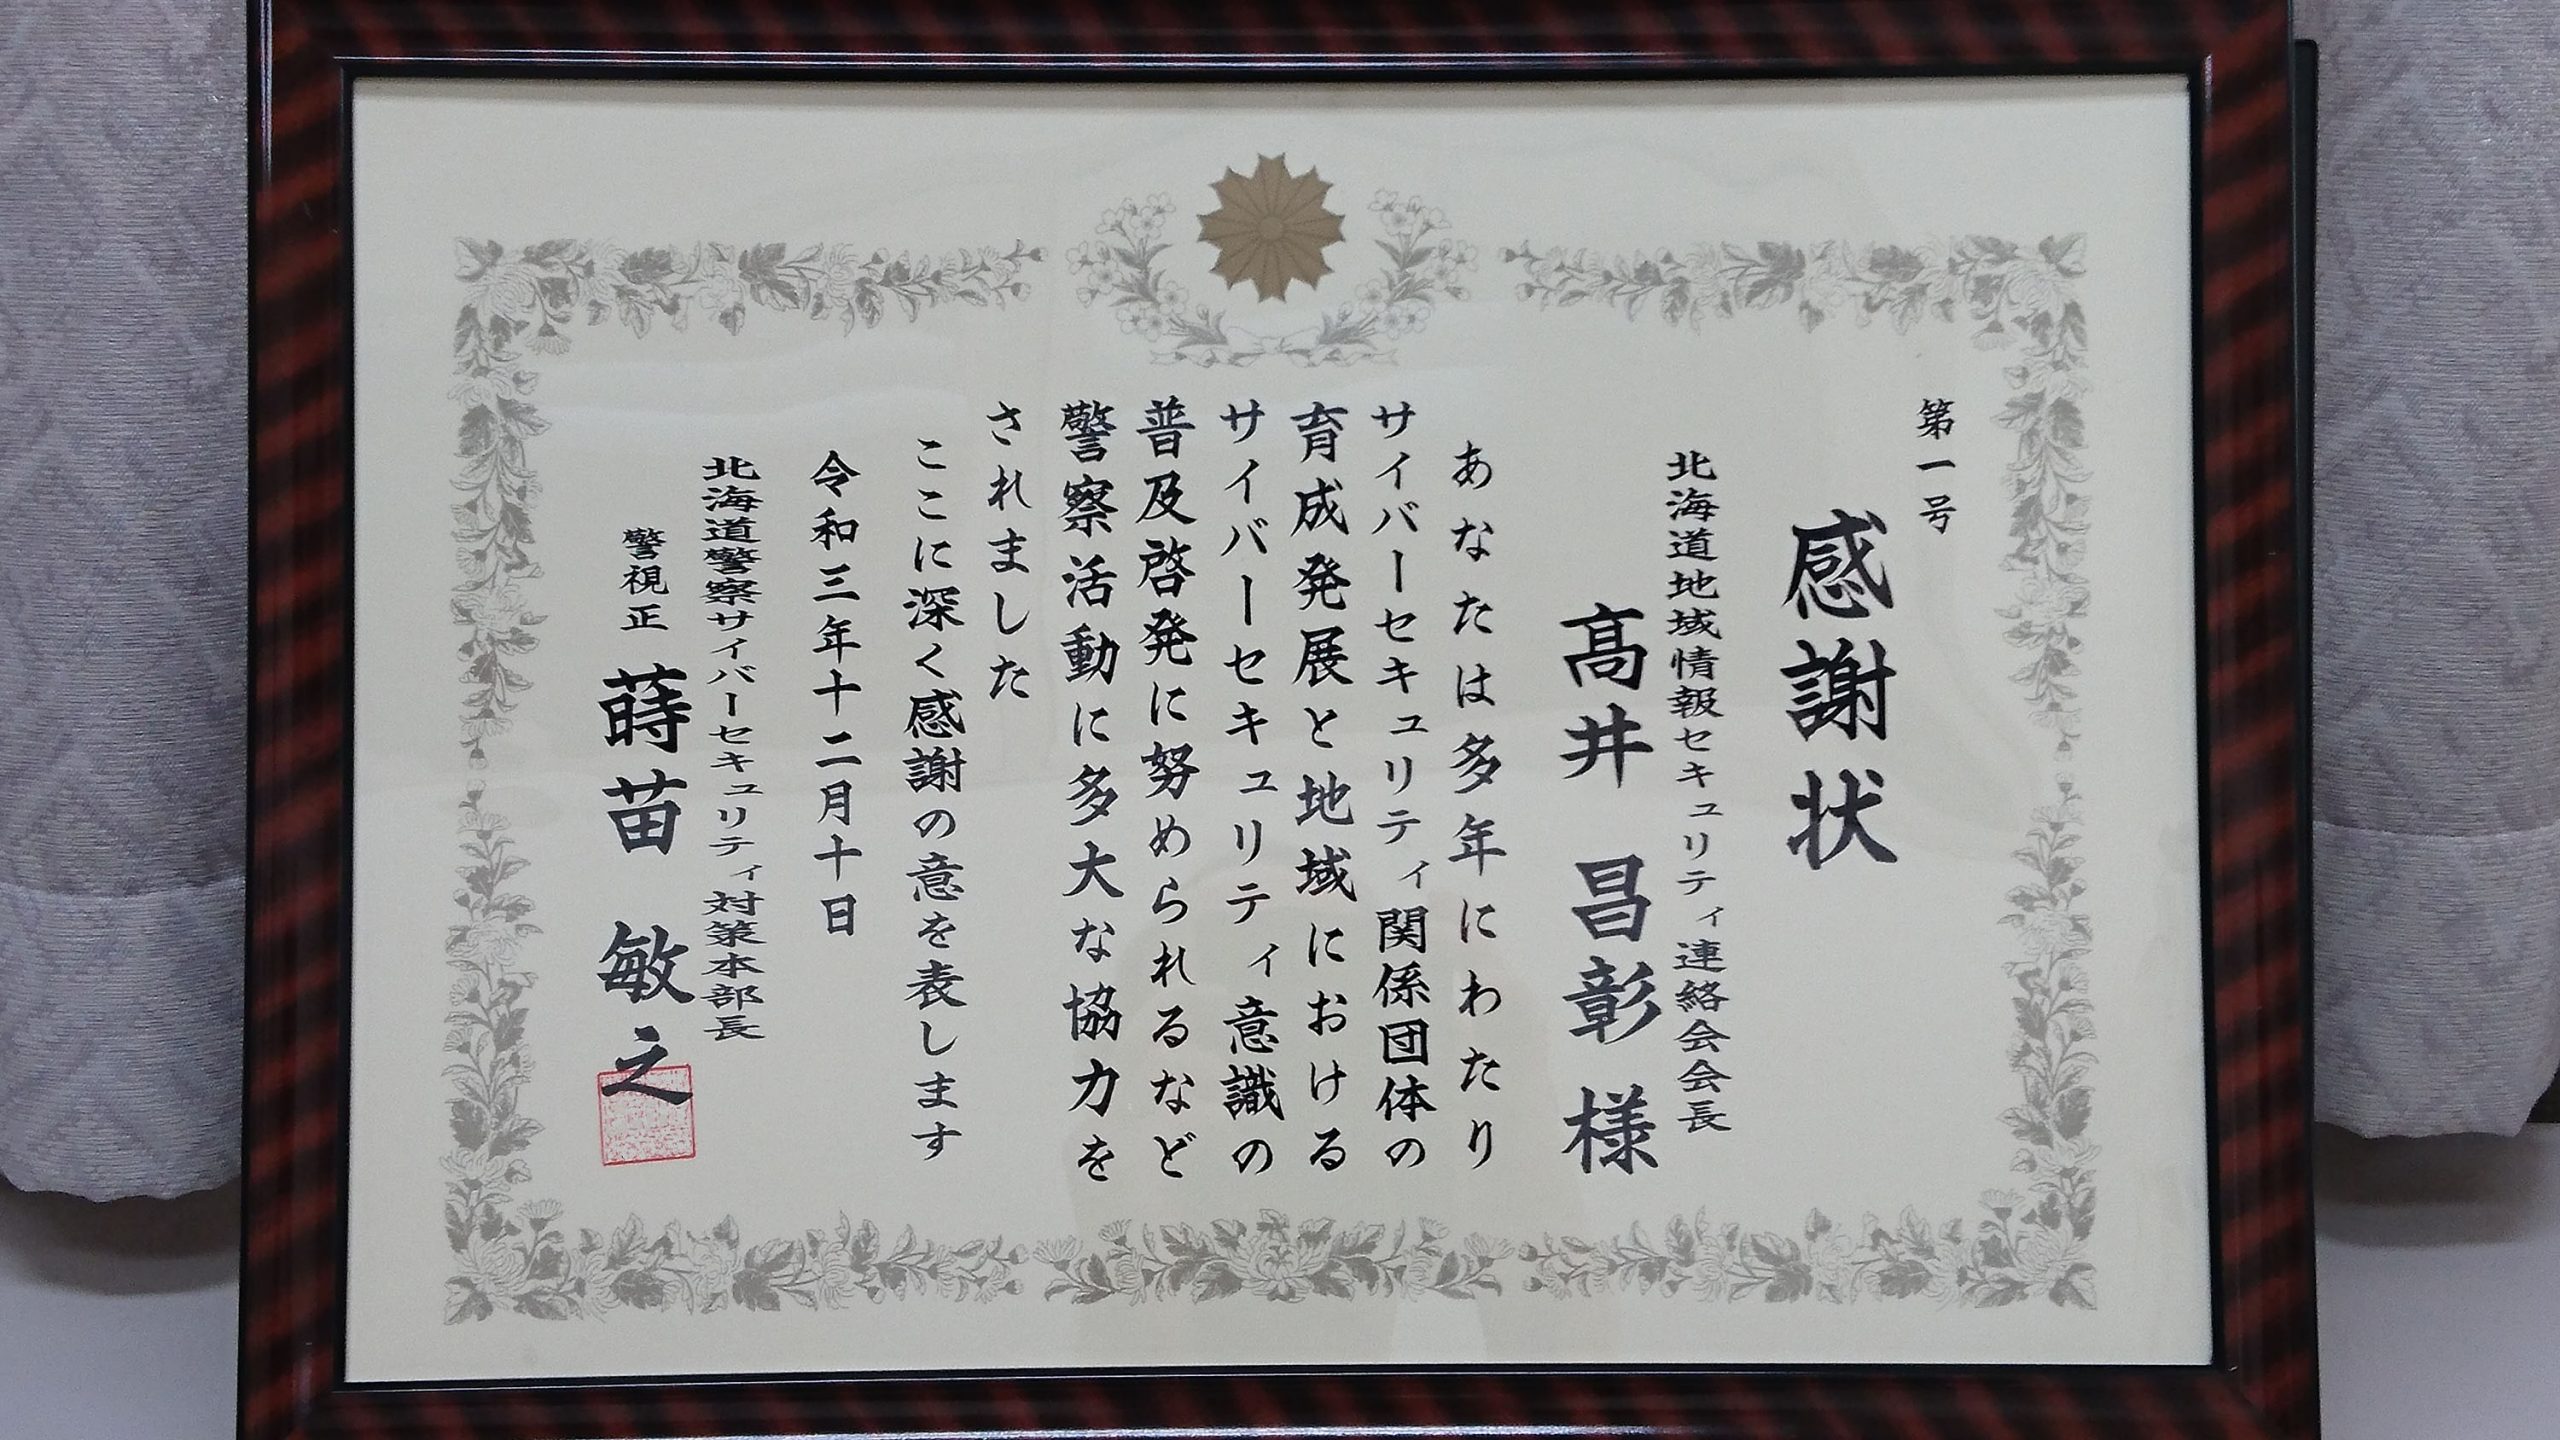 第一号
感謝状
北海道地域情報セキュリティ連絡会会長
髙井昌彰様
あなたは多年にわたり
サイバーセキュリティ関係団体の
育成発展と地域における
サイバーセキュリティ意識の
普及啓発に努められるなど
警察活動に多大な協力を
されました
ここに深く感謝の意を表します
令和三年十二月十日
北海道警察サイバーセキュリティ対策本部長
警視正 蒔苗敏之